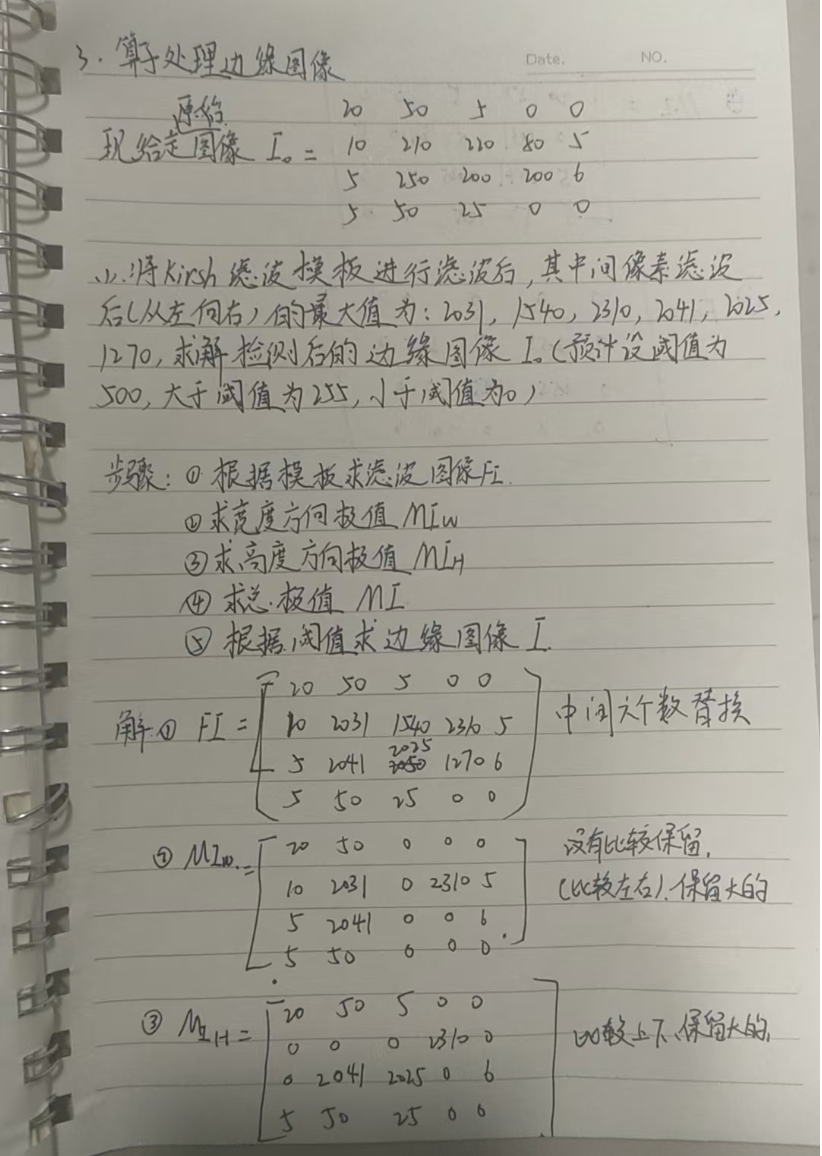 Date. NO.
3. 算子处理边缘图像
原始
20 50 5 0 0
现给定图像 I₀ = 10 210 220 80 5
5 250 200 200 6
5 50 25 0 0
(1).将Kirsh滤波模板进行滤波后,其中间像素滤波
后(从左向右)的最大值为:2031,1540,2310,2041,2025,
1270,求解检测后的边缘图像 I。(预计设阈值为
500,大于阈值为255,小于阈值为0)
步骤:① 根据模板求滤波图像FI.
②求宽度方向极值 MIw
③求高度方向极值 MIH
④ 求总极值 MI
⑤ 根据阈值求边缘图像 I.
20 50 5 0 0
解① FI = 10 2031 1540 2310 5 中间六个数替换
2025
5 2041 2050 1270 6
5 50 25 0 0
② MIw. = 20 50 0 0 0 没有比较保留,
10 2031 0 2310 5 (比较左右).保留大的
5 2041 0 0 6
5 50 0 0 0
20 50 5 0 0
③ MIH = 0 0 0 2310 0 比较上下、保留大的,
0 2041 2025 0 6
5 50 25 0 0